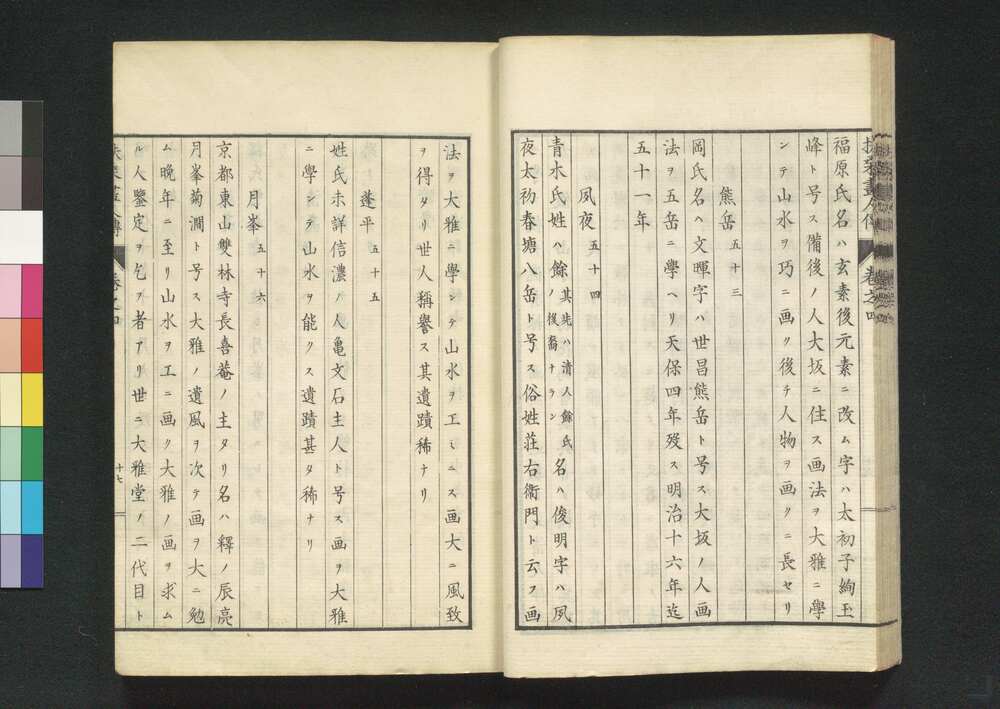 扶桑畫人傳 卷之四
福原氏名ハ玄素後元素ニ改ム字ハ太初子絢玉
峰ト号ス備後ノ人大坂ニ住ス画法ヲ大雅ニ學
ンテ山水ヲ巧ニ画ク後チ人物ヲ画クニ長セリ
熊岳 五十三
岡氏名ハ文暉字ハ世昌熊岳ト号ス大坂ノ人画
法ヲ五岳ニ學ヘリ天保四年歿ス明治十六年迄
五十一年
夙夜 五十四
青木氏姓ハ餘 其先ハ清人餘氏ノ後裔ナラン 名ハ俊明字ハ夙
夜太初春塘八岳ト号ス俗姓莊右衛門ト云フ画
法ヲ大雅ニ學ンテ山水ヲ工ミニス画大ニ風致
ヲ得タリ世人稱誉ス其遺蹟稀ナリ
蓬平 五十五
姓氏未詳信濃ノ人亀文石主人ト号ス画ヲ大雅
ニ學ンテ山水ヲ能クス遺蹟甚タ稀ナリ
月峯 五十六
京都東山雙林寺長喜菴ノ主タリ名ハ釋ノ辰亮
月峯菊澗ト号ス大雅ノ遺風ヲ次テ画ヲ大ニ勉
ム晩年ニ至リ山水ヲ工ニ画ク大雅ノ画ヲ求ム
ル人鑒定ヲ乞フ者アリ世ニ大雅堂ノ二代目ト
扶桑畫人傳 卷之四 十七